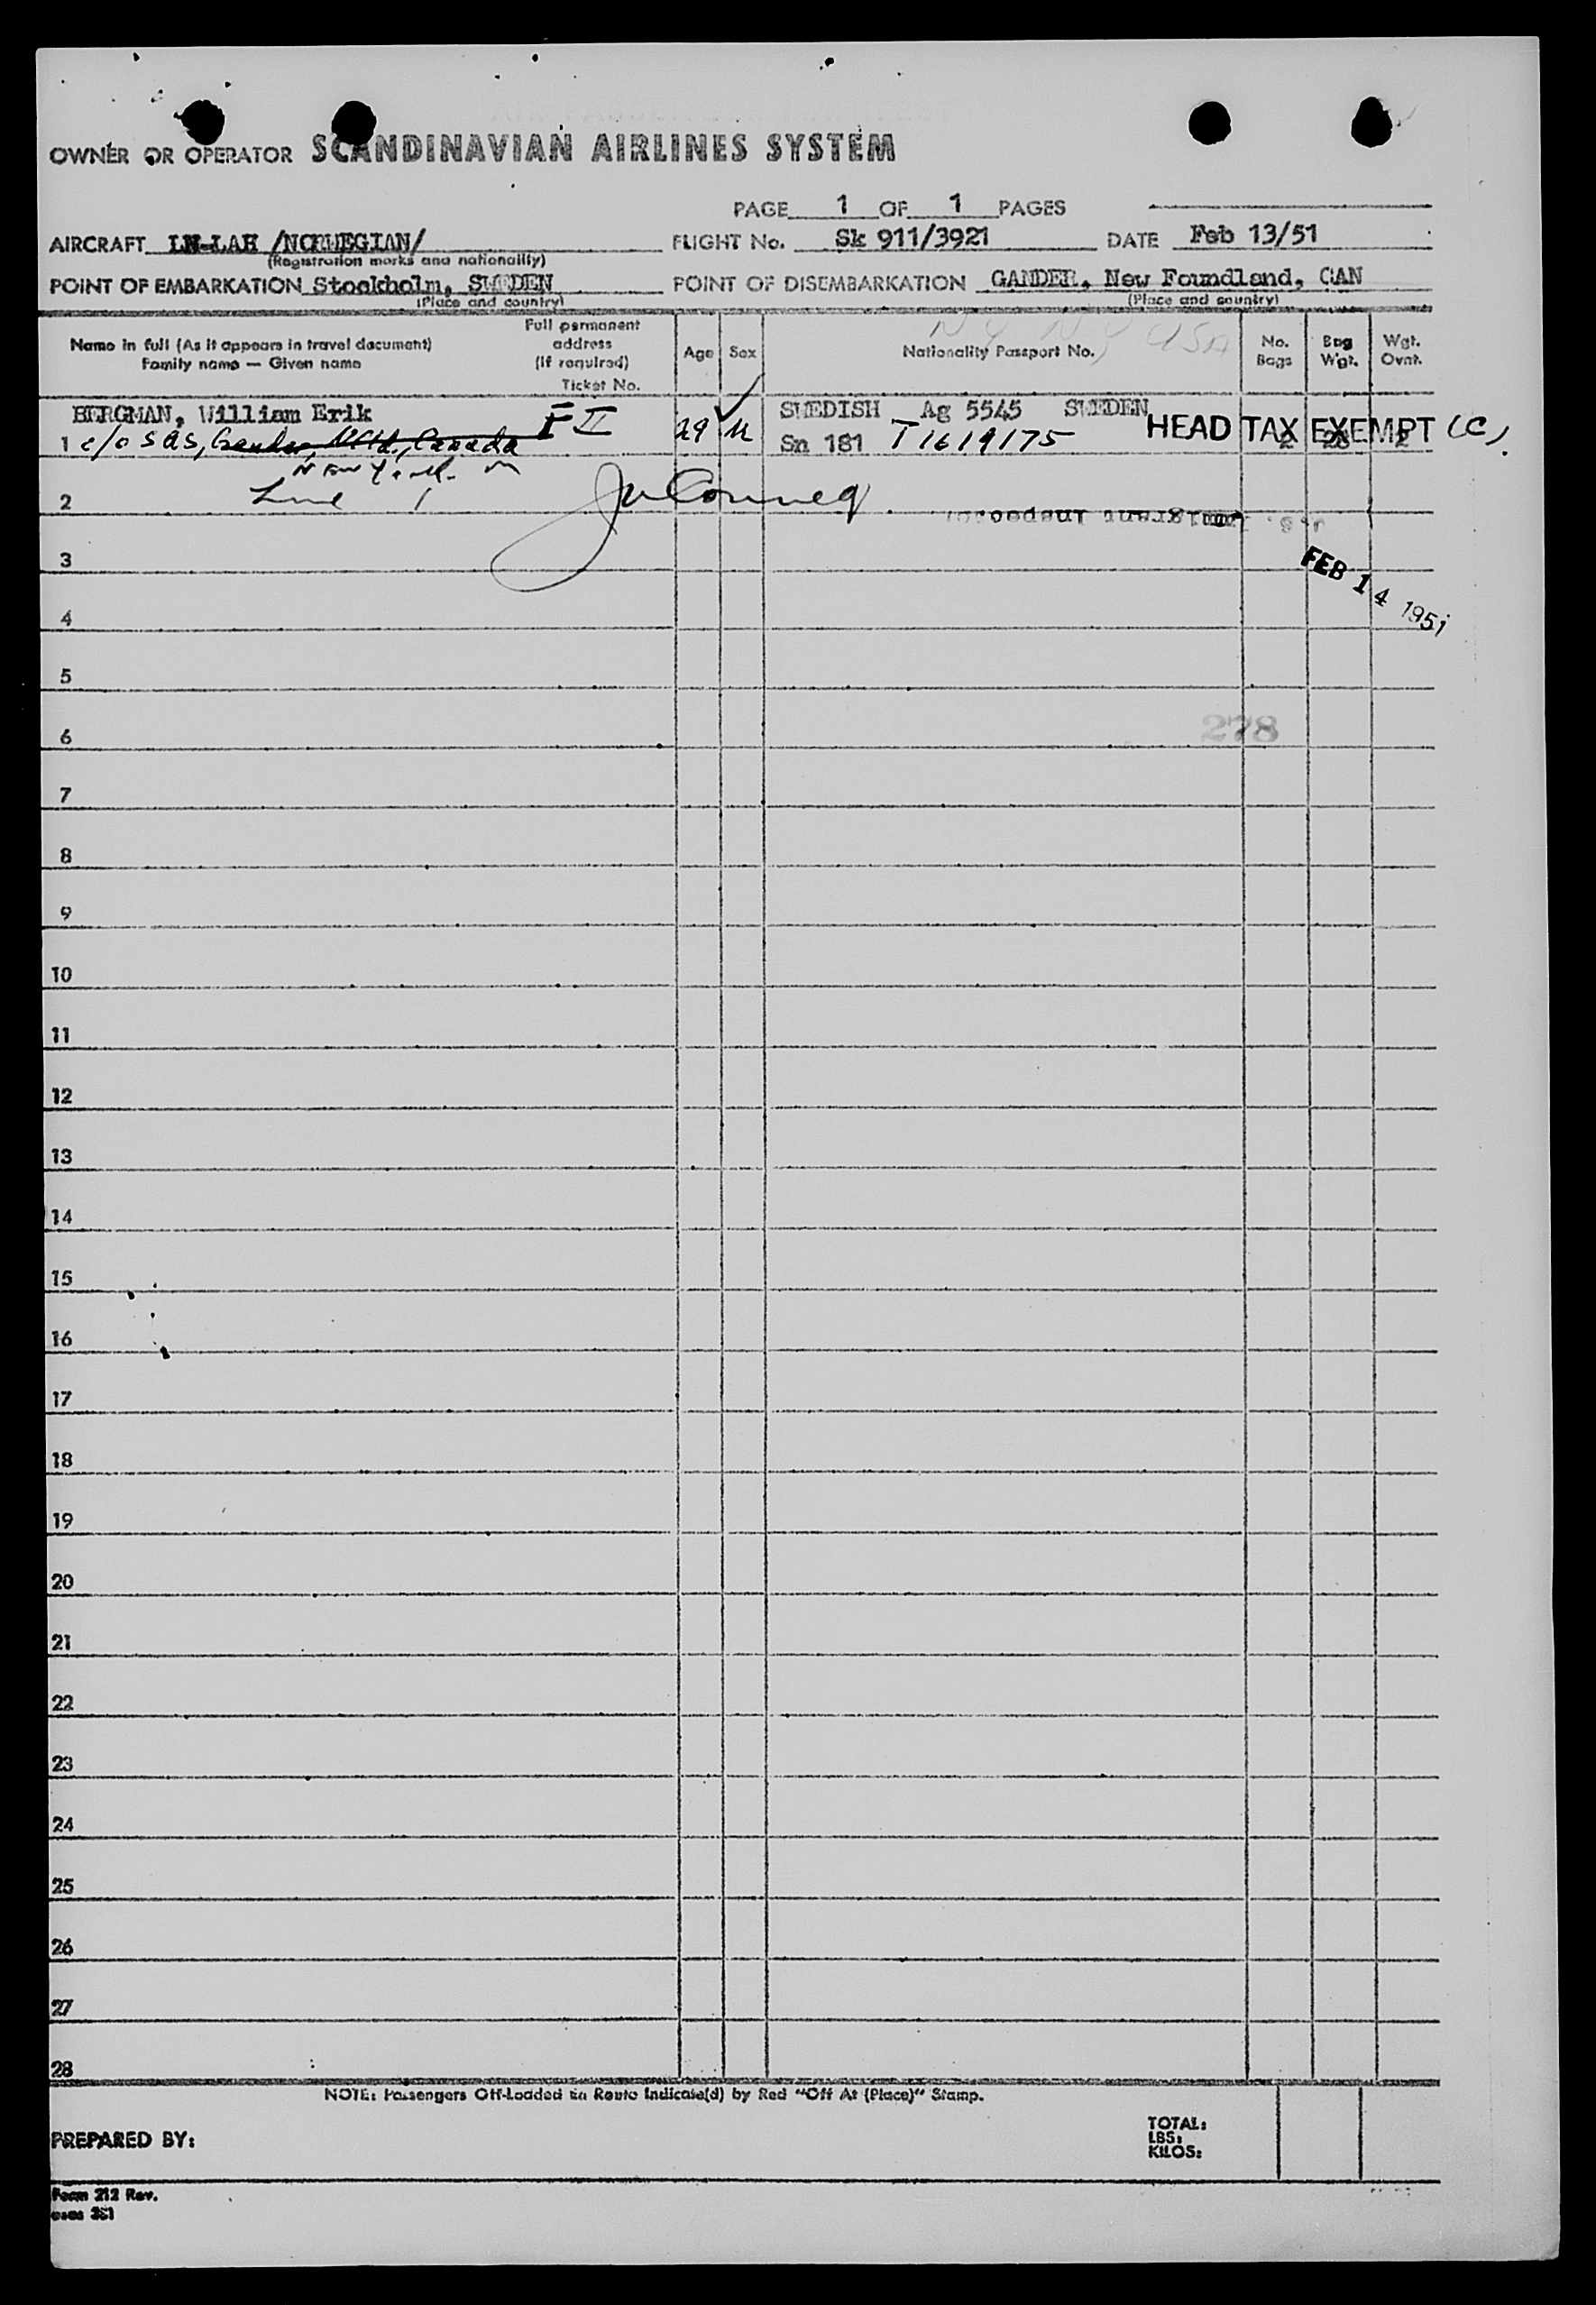 OWNER OR OPERATOR SCANDINAVIAN AIRLINES SYSTEM
PAGE 1 OF 1 PAGES
AIRCRAFT LN-LAH /NORWEGIAN/ FLIGHT No. Sk 911/3921 DATE Feb 13/51
(Registration marks and nationality)
POINT OF EMBARKATION Stockholm, SWEDEN POINT OF DISEMBARKATION GANDER, New Foundland, CAN
(Place and country) (Place and country)
N Y N Y USA
Name in full (As it appears in travel document)
Family name — Given name
Full permanent
address
(if required)
Ticket No.
Age
Sex
Nationality Passport No.
No.
Bags
Bag
Wgt.
Wgt.
Ovnt.
BERGMAN, William Erik F II 29 M SWEDISH Ag 5545 SWEDEN HEAD TAX EXEMPT (C)
1 c/o SAS, Gander, Nfld., Canada Sn 181 T1619175 2 28 2
New York
2 Line 1
Immigrant Inspector
3
FEB 14 1951
4
5
6 278
7
8
9
10
11
12
13
14
15
16
17
18
19
20
21
22
23
24
25
26
27
28
NOTE: Passengers Off-Loaded En Route Indicate(d) by Red "Off At (Place)" Stamp.
PREPARED BY:
TOTAL:
LBS:
KILOS:
Form 212 Rev.
351